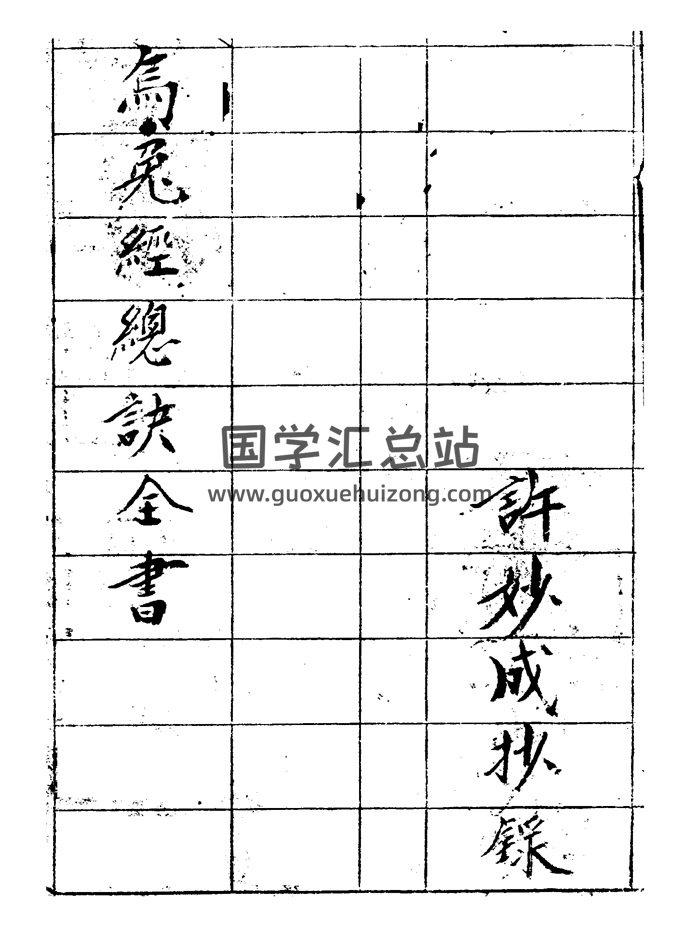 許妙成抄錄
烏兎經總訣全書
国学汇总站
www.guoxuehuizong.com